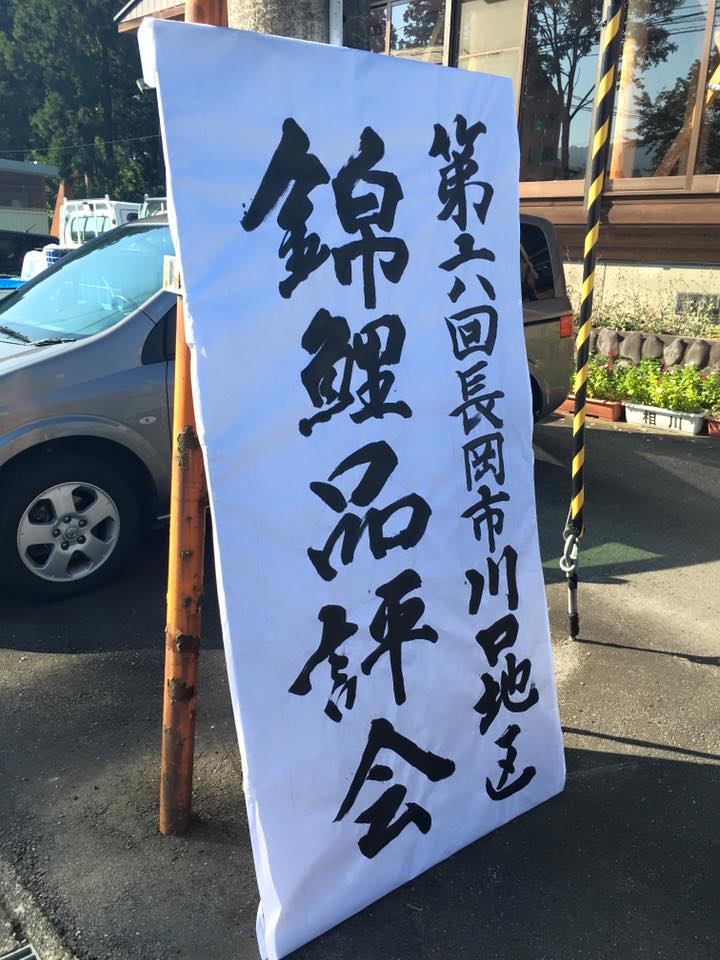 第六回長岡市川口地区
錦鯉品評会
相川